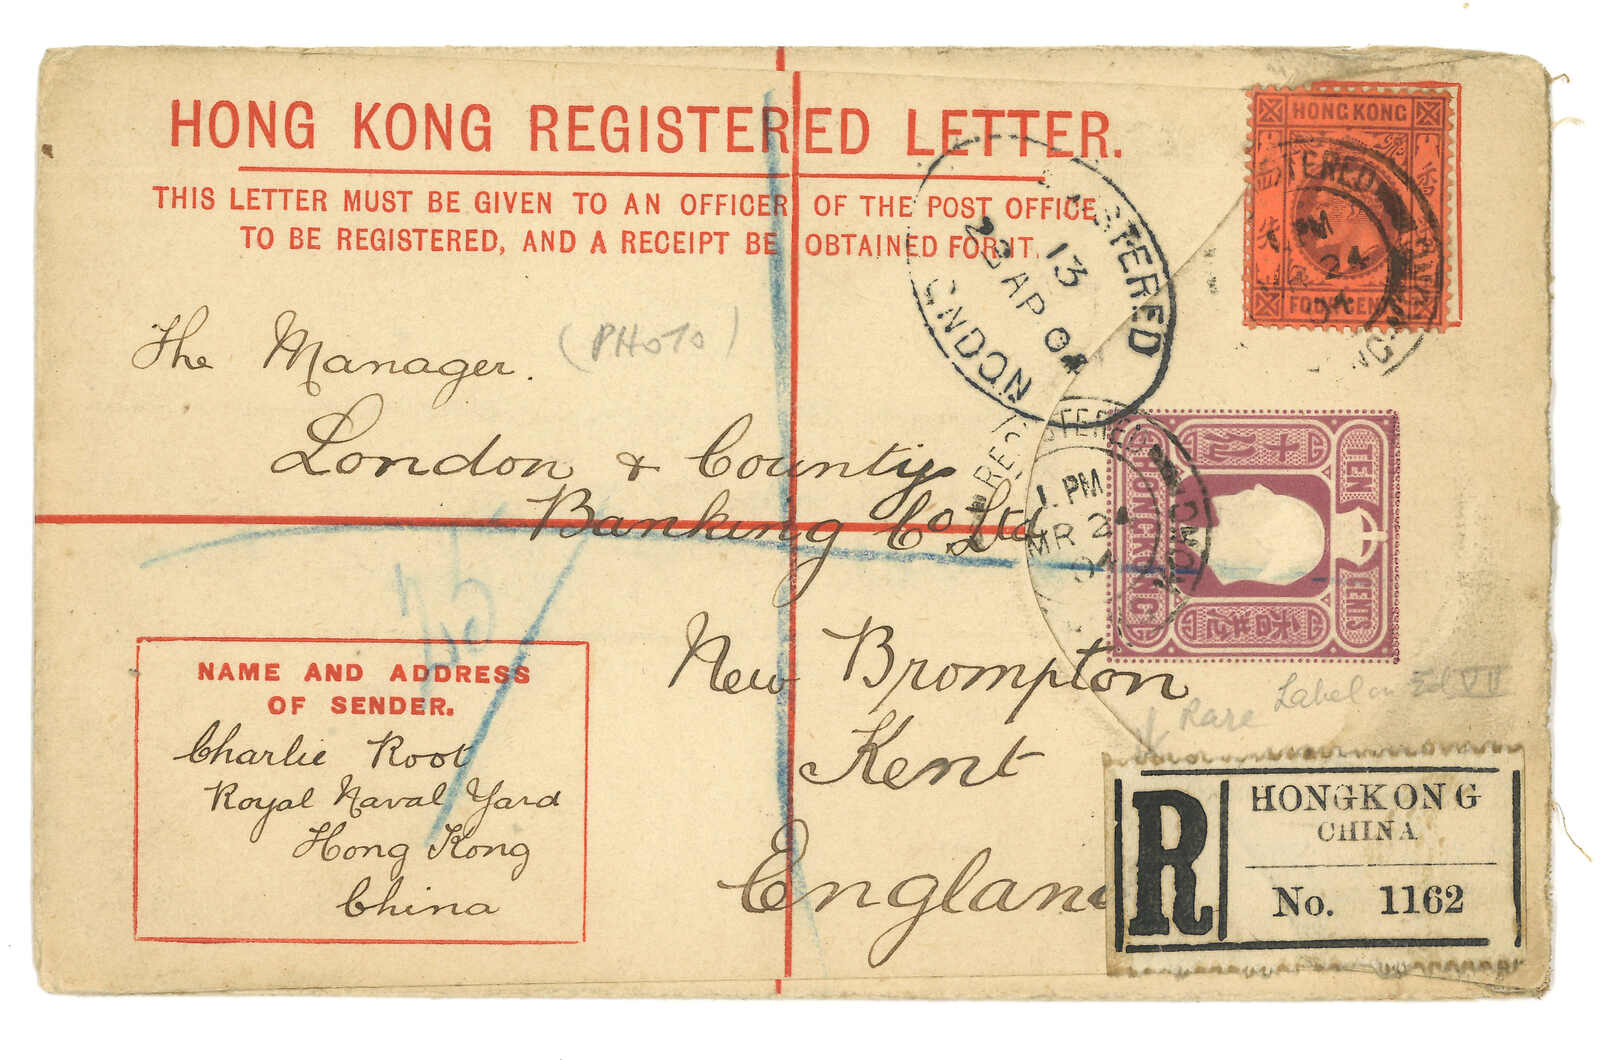 HONG KONG REGISTERED LETTER.
THIS LETTER MUST BE GIVEN TO AN OFFICER OF THE POST OFFICE
TO BE REGISTERED, AND A RECEIPT BE OBTAINED FOR IT.
HONG KONG
FOUR CENTS
REGISTERED
13
22 AP 04
LONDON
The Manager.
(PHOTO)
London & County
Banking Co Ltd
New Brompton
Kent
England
1. PM
MR 24
04
TEN
CENTS
HONG KONG
Rare Label on Ed VII
NAME AND ADDRESS
OF SENDER.
Charlie Root
Royal Naval Yard
Hong Kong
China
R
HONGKONG
CHINA
No. 1162